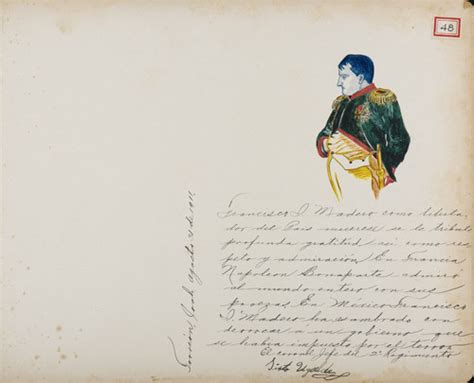 48
Francisco I Madero como liberta
dor del Pais merece se le tribute
profunda gratitud asi como res
peto y admiración. En Francia
Napoleon Bonaparte admiró
al mundo entero con sus
proezas En México Francisco
I Madero ha asombrado con
derrocar a un gobierno que
se habia impuesto por el terror
El coronel Jefe del 2º Regimiento
Sixto Ugalde
Torreón, Coah. Agosto de 1911